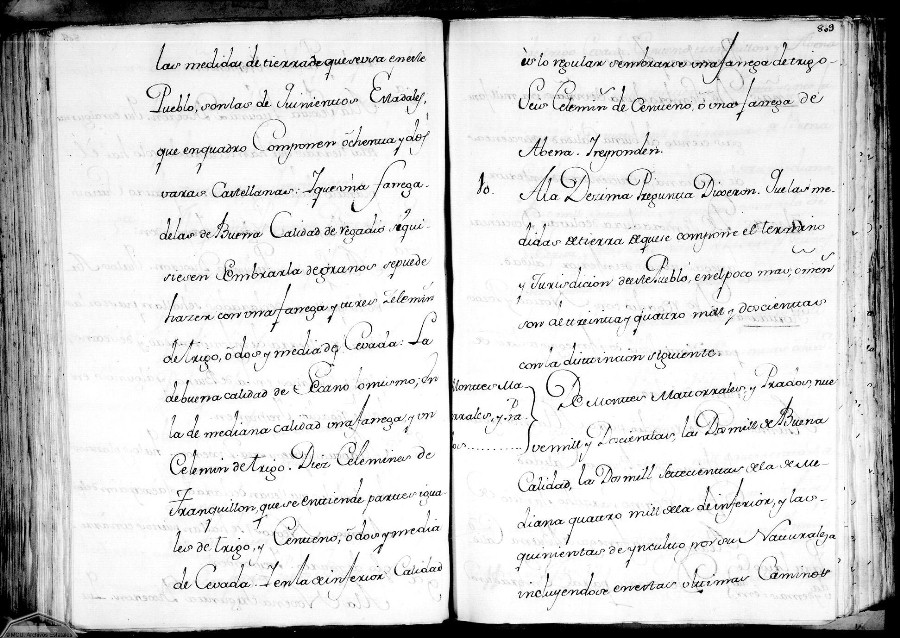 las medidas de tierra de que se usa en este
Pueblo, son las de Quinientos Estadales,
que en quadro Componen ochenta y dos
varas Castellanas: Y que vna fanega
de las de Buena Calidad de regadio si qui
siesen Sembrarla de granos se puede
hazer con vna fanega y tres Zelemin
de trigo, ò dos y media de Cevada: La
de buena calidad de Secano lo mismo; En
la de mediana calidad vna fanega y vn
Celemin de trigo. Diez Celemines de
Tranquillon, que se entiende partes igua
les de trigo, y Centeno, ò dos y media
de Cevada. Y en la de inferior Calidad
809
ès lo regular sembrarse vna fanega de trigo
Seis Celemin de Centeno, ò vna fanega de
Abena. Y responden
10. A la Dezima Pregunta Dixeron. Que las me
didas de tierra de que se compone el termino
y Jurisdicion de este Pueblo, en el poco mas, ò men
son de treinta y quatro mill y doscientas
con la distincion siguiente.
Montes Ma
torrales, y Pra
dos
De Montes Matorrales, y Prados, nue
ve mill y Doscientas, las Dos mill de Buena
Calidad, las Dos mill setecientas de la de Me
diana quatro mill de la de inferior, y las
quinientas de ynculto por su Naturaleza
incluyendose en estas vltimas Caminos
©MCD. Archivos Estatales